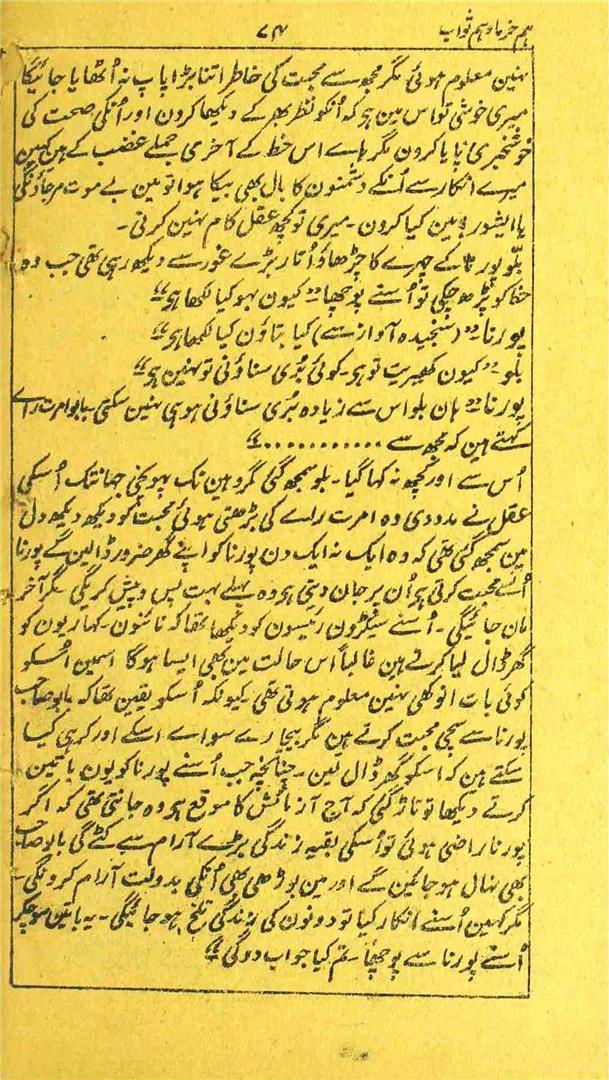 ہم خرما و ہم ثواب
۷۴
نہین معلوم ہوئی مگر مجھ سے محبت کی خاطر اتنا بڑا پاپ نہ اُٹھایا جائیگا
میری خوشی تو اس مین ہی کہ اُنکو نظر بھر کے دیکھا کرون اور اُنکی صحت کی
خوشخبری پایا کرون مگر ہاے اس خط کے آخری جملے غضب کے ہین کہین
میرے انکار سے اُنکے دشمنون کا بال بھی بیکا ہوا تو مین بے موت مرجاؤنگی
یا ایشور مین کیا کرون ۔ میری تو کچھ عقل کام نہین کرتی ۔
بلّو پورنا کے چہرے کا چڑھاؤ اُتار بڑے غور سے دیکھ رہی تھی جب وہ
خط کو پڑھ چکی تو اُسنے پوچھا ”کیون بہو کیا لکھا ہی“
پورنا ”(سنجیدہ آواز سے) کیا بتاؤن کیا لکھا ہی“
بلو ”کیون کھیریت تو ہی ۔ کوئی بُری سناؤنی تو نہین ہی“
پورنا ”ہان بلو اس سے زیادہ بُری سناؤنی ہو ہی نہین سکتی ۔ بابو امرت راے
کہتے ہین کہ مجھ سے ............“
اُس سے اور کچھ نہ کہا گیا ۔ بلو سمجھ گئی مگر وہین تک پہونچی جہانتک اُسکی
عقل نے مدد دی وہ امرت راے کی بڑھتی ہوئی محبت کو دیکھ دیکھ دل
مین سمجھ گئی تھی کہ وہ ایک نہ ایک دن پورنا کو اپنے گھر ضرور ڈالین گے پورنا
اُنسے محبت کرتی ہی اُن پر جان دیتی ہی وہ پہلے بہت پس و پیش کریگی مگر آخر
مان جائیگی ۔ اُسنے سیکڑون رئیسون کو دیکھا تھا کہ نائنون ۔ کہاریون کو
گھر ڈال لیا کرتے ہین غالباً اس حالت مین بھی ایسا ہوگا اسمین اُسکو
کوئی بات انوکھی نہین معلوم ہوتی تھی ۔ کیونکہ اُسکو یقین تھا کہ بابو صاحب
پورنا سے سچی محبت کرتے ہین مگر بیچارے سواے اسکے اور کر ہی کیا
سکتے ہین کہ اسکو گھر ڈال لین ۔ چنانچہ جب اُسنے پورنا کو یون باتین
کرتے دیکھا تو تاڑ گئی کہ آج آزمائش کا موقع ہی وہ جانتی تھی کہ اگر
پورنا راضی ہوئی تو اُسکی بقیہ زندگی بڑے آرام سے کٹے گی بابو صاحب
بھی نہال ہو جائین گے اور مین بوڑھی بھی اُنکی بدولت آرام کرونگی ۔
مگر کہین اُسنے انکار کیا تو دونون کی زندگی تلخ ہو جائیگی ۔ یہ باتین سوچکر
اُسنے پورنا سے پوچھا ۔ تم کیا جواب دوگی“